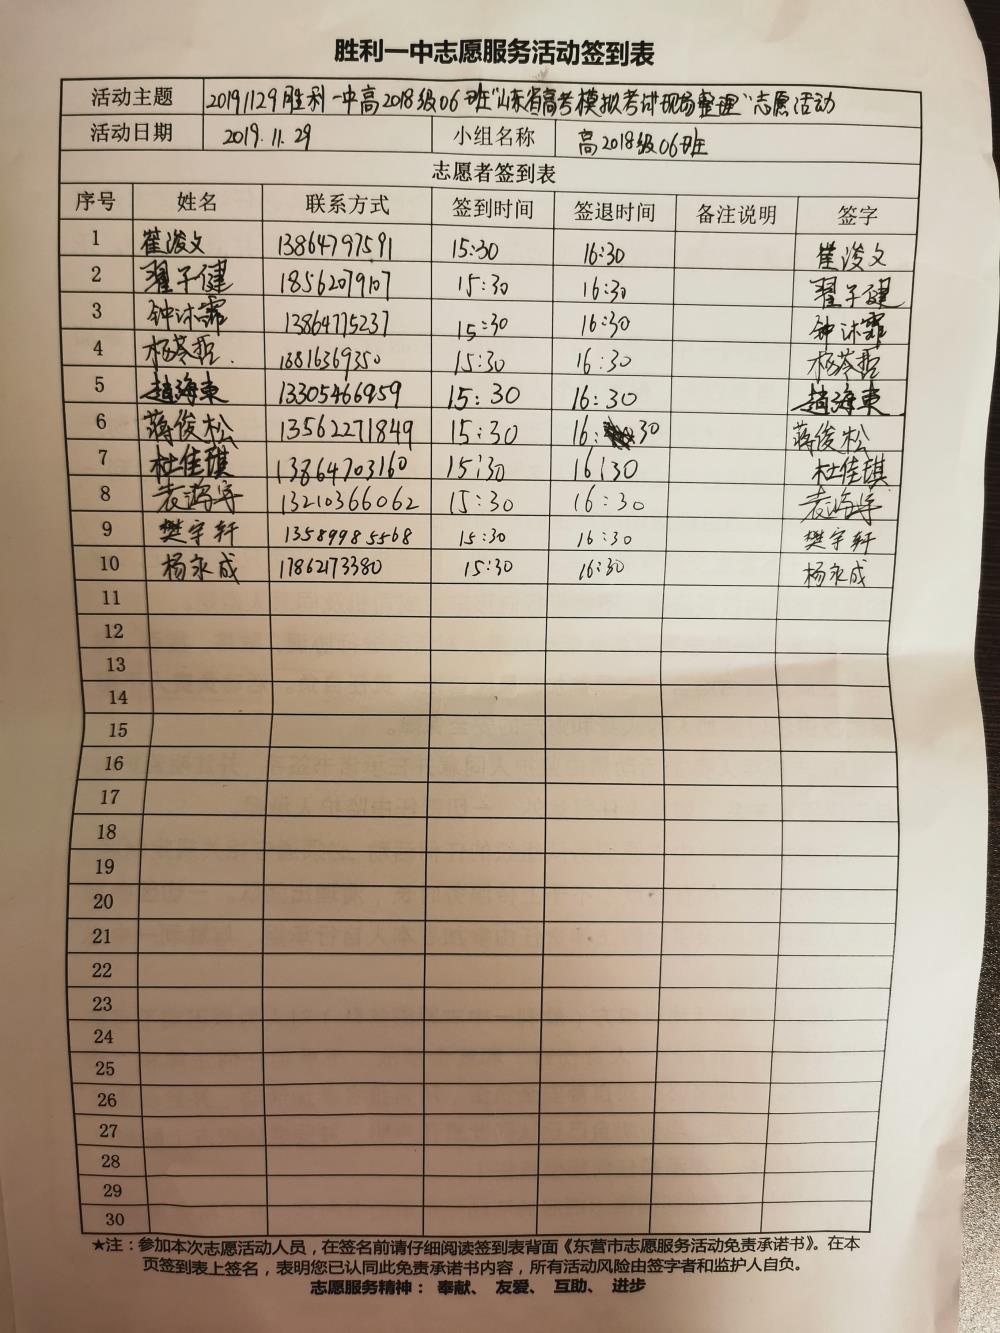 胜利一中志愿服务活动签到表
活动主题 20191129胜利一中高2018级06班"山东省高考模拟考试现场整理"志愿活动
活动日期 2019.11.29 小组名称 高2018级06班
志愿者签到表
序号 姓名 联系方式 签到时间 签退时间 备注说明 签字
1 崔浚文 13864797591 15:30 16:30 崔浚文
2 翟子健 18562079107 15:30 16:30 翟子健
3 钟沐霏 13864775237 15:30 16:30 钟沐霏
4 杨苓哲 13816369350 15:30 16:30 杨苓哲
5 趙海東 13305466959 15:30 16:30 趙海東
6 蒋俊松 13562271849 15:30 16:30 蒋俊松
7 杜佳琪 13864703160 15:30 16:30 杜佳琪
8 袁鸿宇 13210366062 15:30 16:30 袁鸿宇
9 樊宇轩 13589985568 15:30 16:30 樊宇轩
10 杨永成 17862173380 15:30 16:30 杨永成
11
12
13
14
15
16
17
18
19
20
21
22
23
24
25
26
27
28
29
30
★注：参加本次志愿活动人员，在签名前请仔细阅读签到表背面《东营市志愿服务活动免责承诺书》。在本
页签到表上签名，表明您已认同此免责承诺书内容，所有活动风险由签字者和监护人自负。
志愿服务精神： 奉献、 友爱、 互助、 进步